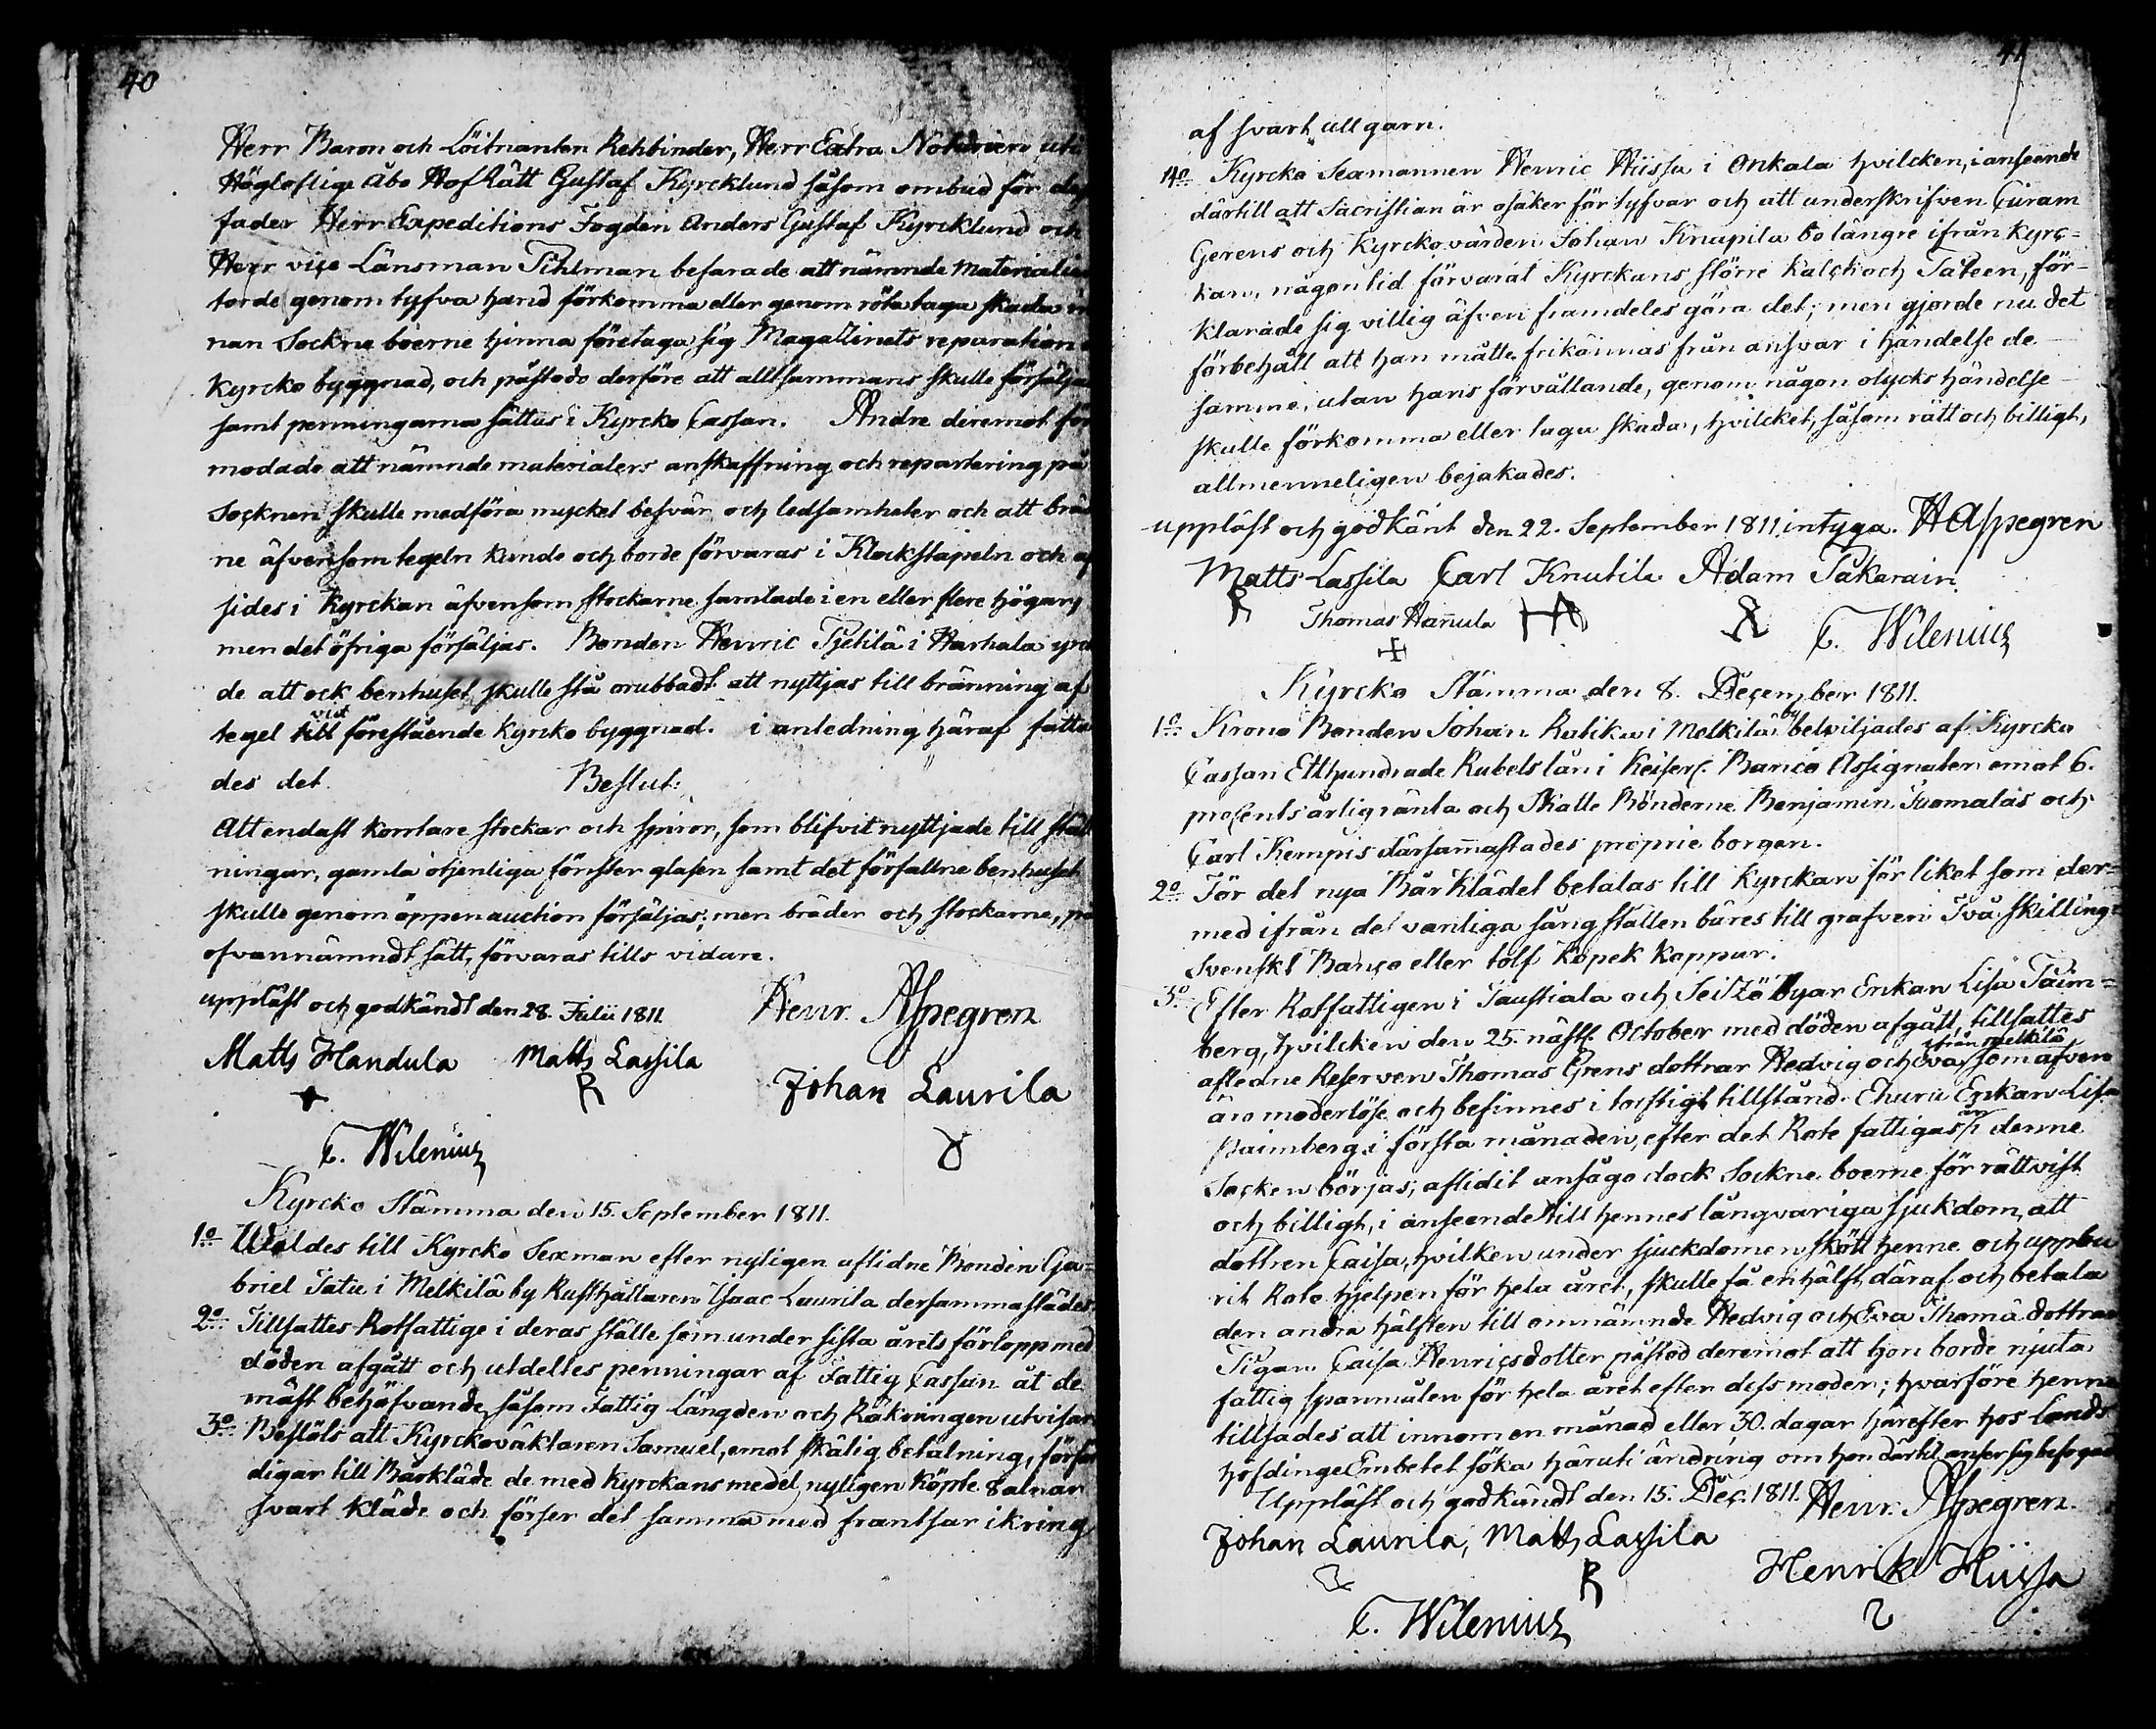 40
Herr Baron och Löitnanten Rehbinder, Herr Extra Notarien uti
Högloflige Åbo HofRätt Gustaf Kyrcklund såsom ombud för dess
fader Herr Expeditions Fogden Anders Gustaf Kyrcklund och
Herr viçe Länsman Tihlman befarade att nämnde materialier
torde genom tyfva hand förkomma eller genom röta taga skada in-
nan Sockne boerne hinna företaga sig Magazinets reparation
Kyrcko byggnad, och påstodo derföre att alltsammans skulle försäljas
samt penningarna sättas i Kyrcko Cassan. Andre deremot för
modade att nämnde materialers anskaffning och repartering på
Socknen skulle medföra mycket besvär och ledsamheter och att bräd
ne äfvensom tegeln kunde och borde förvaras i Klockstapeln och af
sides i Kyrckan äfvensom stockarne samlade i en eller flere högar,
men det öfriga försäljas. Bonden Henric Pjetilä i Harhala yrka
de att ock benhuset skulle stå orubbadt att nyttjas till bränning af
tegel till vid förestående Kyrcko byggnad. i anledning häraf fatta
des det Beslut:
Att endast kortare stockar och spiror, som blifvit nyttjade till ställ
ningar, gamla otjenliga fönster glasen samt det förfallne benhuset
skulle genom öppen auction försäljas; men bräder och stockarne, på
ofvannämndt sätt, förvaras tills vidare.
uppläst och godkändt den 28. Julii 1811. Henr. Aspegren
Matts Handula Matts Lassila
Johan Laurila
C. Wilenius
Kyrcko Stämma den 15. September 1811.
1o Waldes till Kyrcko Sexman efter nyligen aflidne Bonden Ga-
briel Tatu i Melkilä by Rusthållaren Isaac Laurila dersammastädes.
2o Tillsattes Rotfattige i deras ställe som under sista årets förlopp med
döden afgått och utdeltes penningar af Fattig Cassan åt de
mäst behöfvande såsom Fattig Längden och Räkningen utvisar.
3o Beslöts att Kyrckoväktaren Samuel, emot skälig betalning, förfär
digar till Bårkläde de med Kyrckans medel nyligen köpte 8 alnar
svart kläde och förser det samma med frantsar ikring
41
af svart ullgarn.
4o Kyrcko Sexmannen Henric Hiissa i Onkala hvilcken, i anseende
därtill att Sacristian är osäker för tyfvar och att underskrifven Curam
Gerens och Kyrckovärden Johan Knapila bo längre ifrån Kyrc-
kan, någon tid förvarat Kyrckans större Kalck och Pateen, för-
klarade sig villig äfven framdeles göra det; men gjorde nu det
förbehåll att han måtte frikännas från ansvar i händelse de
samme, utan hans förvållande, genom någon olycks händelse
skulle förkomma eller taga skada, hvilcket, såsom rätt och billigt,
allmenneligen bejakades.
uppläst och godkänt den 22. September 1811, intyga. H Aspegren
Matts Lassila Carl Knutila Adam Pakarain
Thomas Hannula
C. Wilenius
Kyrcko Stämma den 8. December 1811.
1o Krono Bonden Johan Rubika i Melkilä by belviljades af Kyrcko
Cassan Etthundrade Rubels lån i Keiserl. Banco Assignater emot 6.
procents årlig ränta och Skatte Bönderne Benjamin Tuomalas och
Carl Kempis därsammastädes proprie borgen.
2o För det nya Bår Klädet betalas till Kyrckan för liket som der-
med ifrån det vanliga sång stället bäres till grafven Två Skilling
Svenskt Banço eller tolf Kopek Koppar.
3o Efter Rotfattigen i Taustiala och Seitzö byar Enkan Lisa Paim-
berg, hvilcken den 25. nästl. October med döden afgått, tillsattes
afledne Reserven Thomas Grens dottrar Hedvig och Eva ifrån Melkilä, som äfven
äro moderlöse och befinnes i torftigt tillstånd. Ehuru Enkan Lisa
Paimberg i första månaden, efter det Rote fattigas år i denne
Socken börjas, aflidit ansågo dock Sockne boerne för rättvist
och billigt, i anseende till hennes långvariga sjukdom, att
dottren Caisa, hvilken under sjuckdomen skött henne och uppbu
rit Rote hjelpen för hela året, skulle få en hälft däraf och betala
den andra hälften till omnämnde Hedvig och Eva Thomä döttrar
Pigan Caisa Henricsdotter påstod deremot att hon borde njuta
fattig spanmålen för hela året efter dess moder; hvarföre henne
tillsades att innom en månad eller 30. dagar härefter hos Lands
höfdinge Embetet söka häruti ändring om hon därtil anser sig befogad
Uppläst och godkändt den 15. Dec. 1811. Henr. Aspegren.
Johan Laurila, Matts Lassila
Henrik Hiissa
C. Wilenius